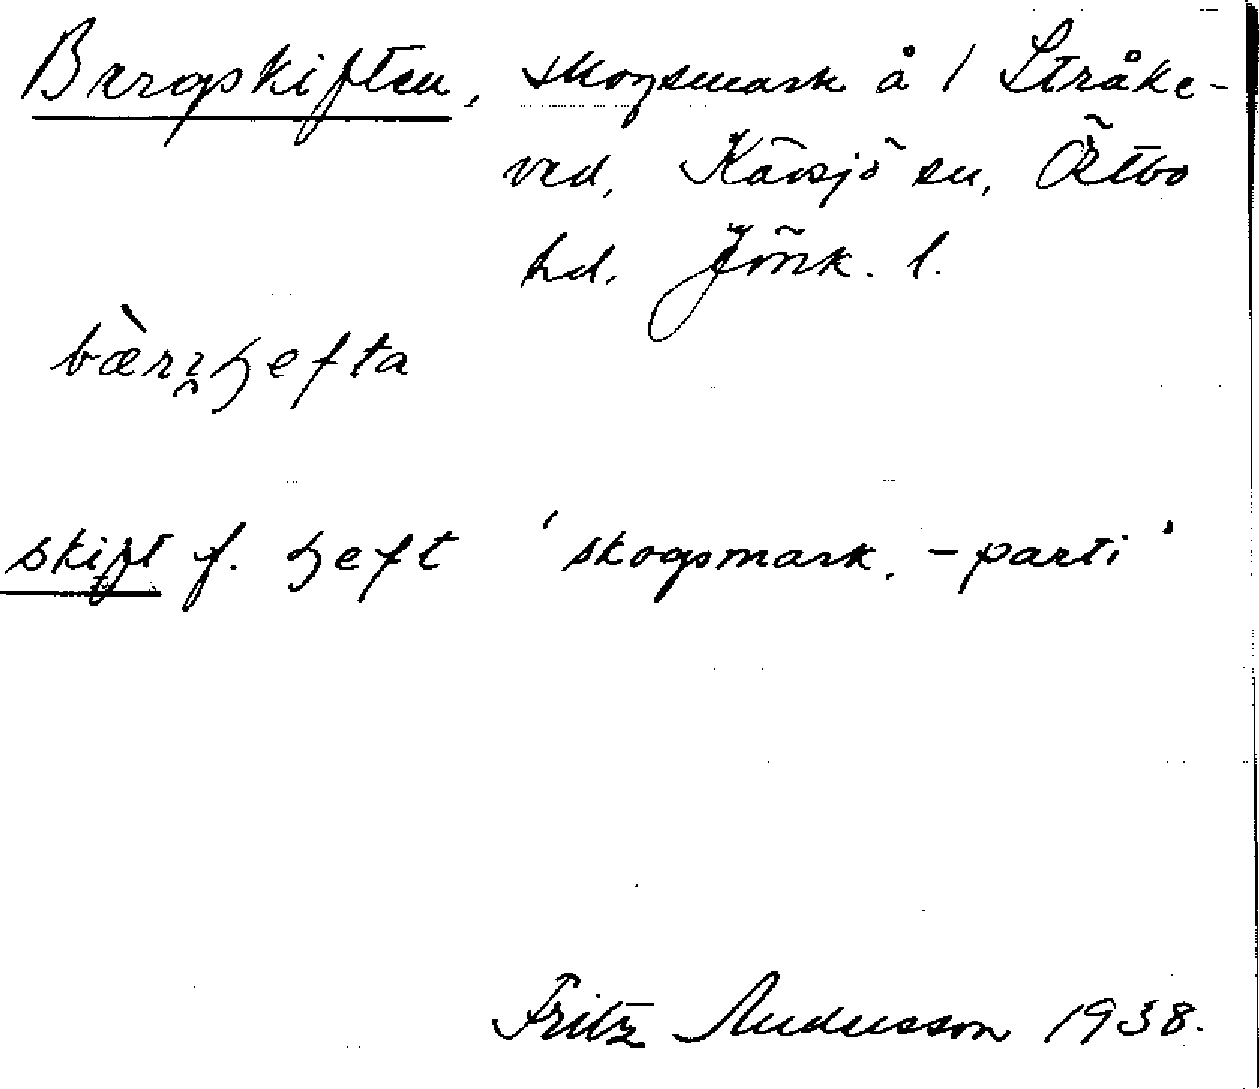 Bergskiften, skogsmark å 1 Stråke-
ved, Kävsjö sn, Östbo
hd. Jönk. l.
bæ̀rʒ̯ɧefta
skift f. ɧeft 'skogsmark, -parti'
Fritz Andersson 1938.